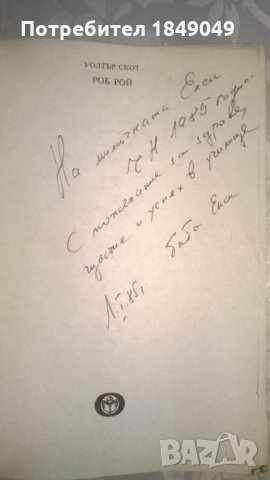 Потребител 1849049
УОЛТЪР СКОТ
РОБ РОЙ
На миличката Елси
ЧН 1985 година
С пожелание за здраве,
щастие и успех в училище
баба Елси
1.I.85г.
BAZAR.BG